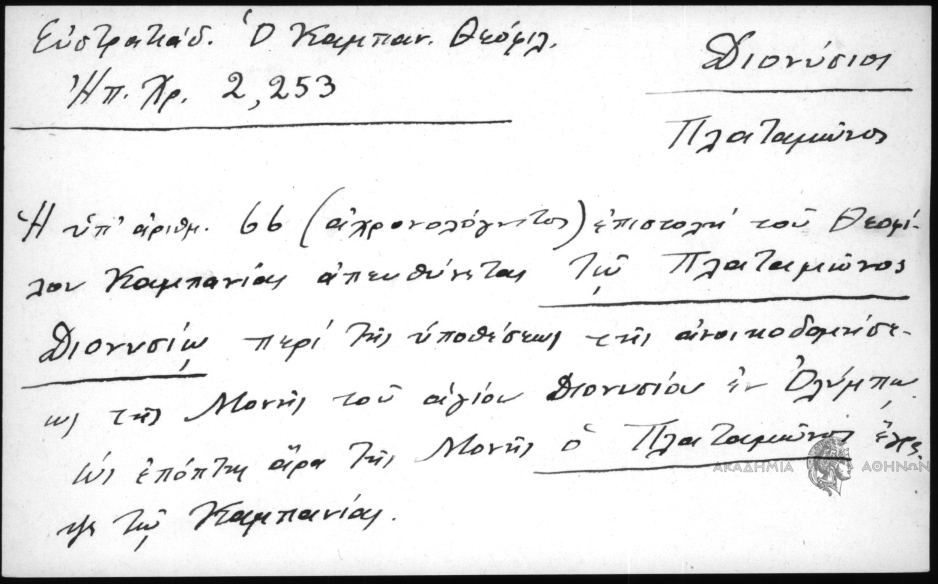 Εὐστρατιάδ. Ὁ Καμπαν. Θεόφιλ.
Ἠπ. Χρ. 2,253
Διονύσιος
Πλαταμῶνος
Ἡ ὑπ' ἀριθμ. 66 (ἀχρονολόγητος) ἐπιστολὴ τοῦ Θεοφί-
λου Καμπανίας ἀπευθύνεται τῷ Πλαταμῶνος
Διονυσίῳ περὶ τῆς ὑποθέσεως τῆς ἀνοικοδομήσε-
ως τῆς Μονῆς τοῦ ἁγίου Διονυσίου ἐν Ὀλύμπῳ.
Ὡς ἐπόπτης ἄρα τῆς Μονῆς ὁ Πλαταμῶνος ἔγρα-
ψε τῷ Καμπανίας.
ΑΚΑΔΗΜΙΑ ΑΘΗΝΩΝ